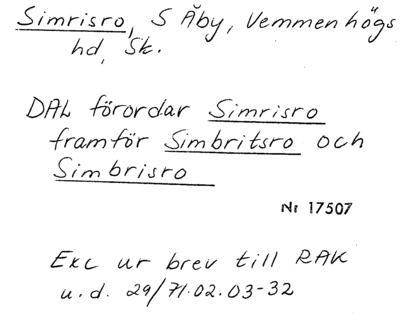 Simrisro, S Åby, Vemmenhögs
hd, Sk.
DAL förordar Simrisro
framför Simbritsro och
Simbrisro
Nr 17507
Exc ur brev till RAK
u.d. 29/71.02.03-32